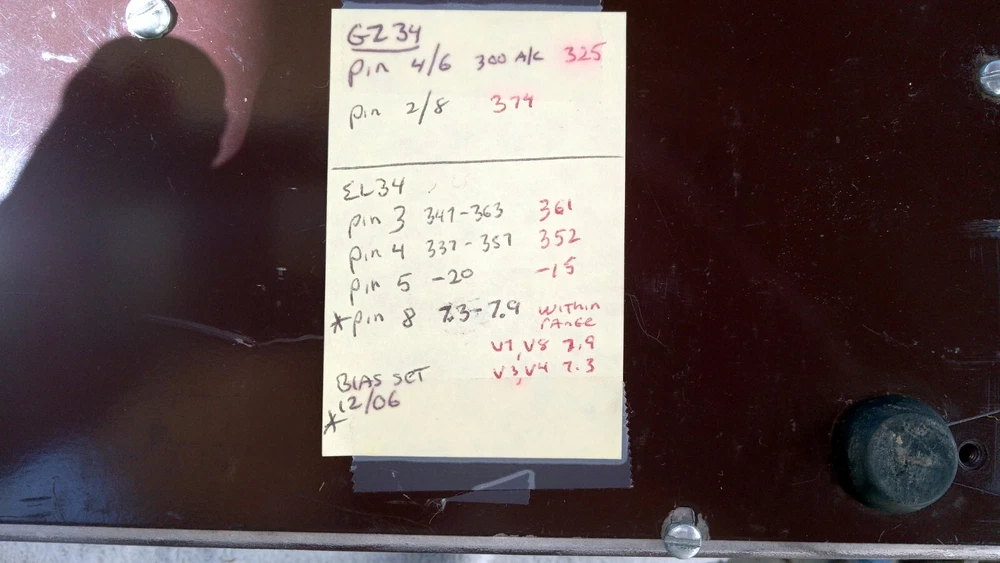 GZ34
pin 4/6 300 A/C 325
pin 2/8 374
EL34
pin 3 347-363 361
pin 4 337-357 352
pin 5 -20 -15
*pin 8 7.3-7.9 within range
V7, V8 7.9
V3, V4 7.3
BIAS SET
*12/06